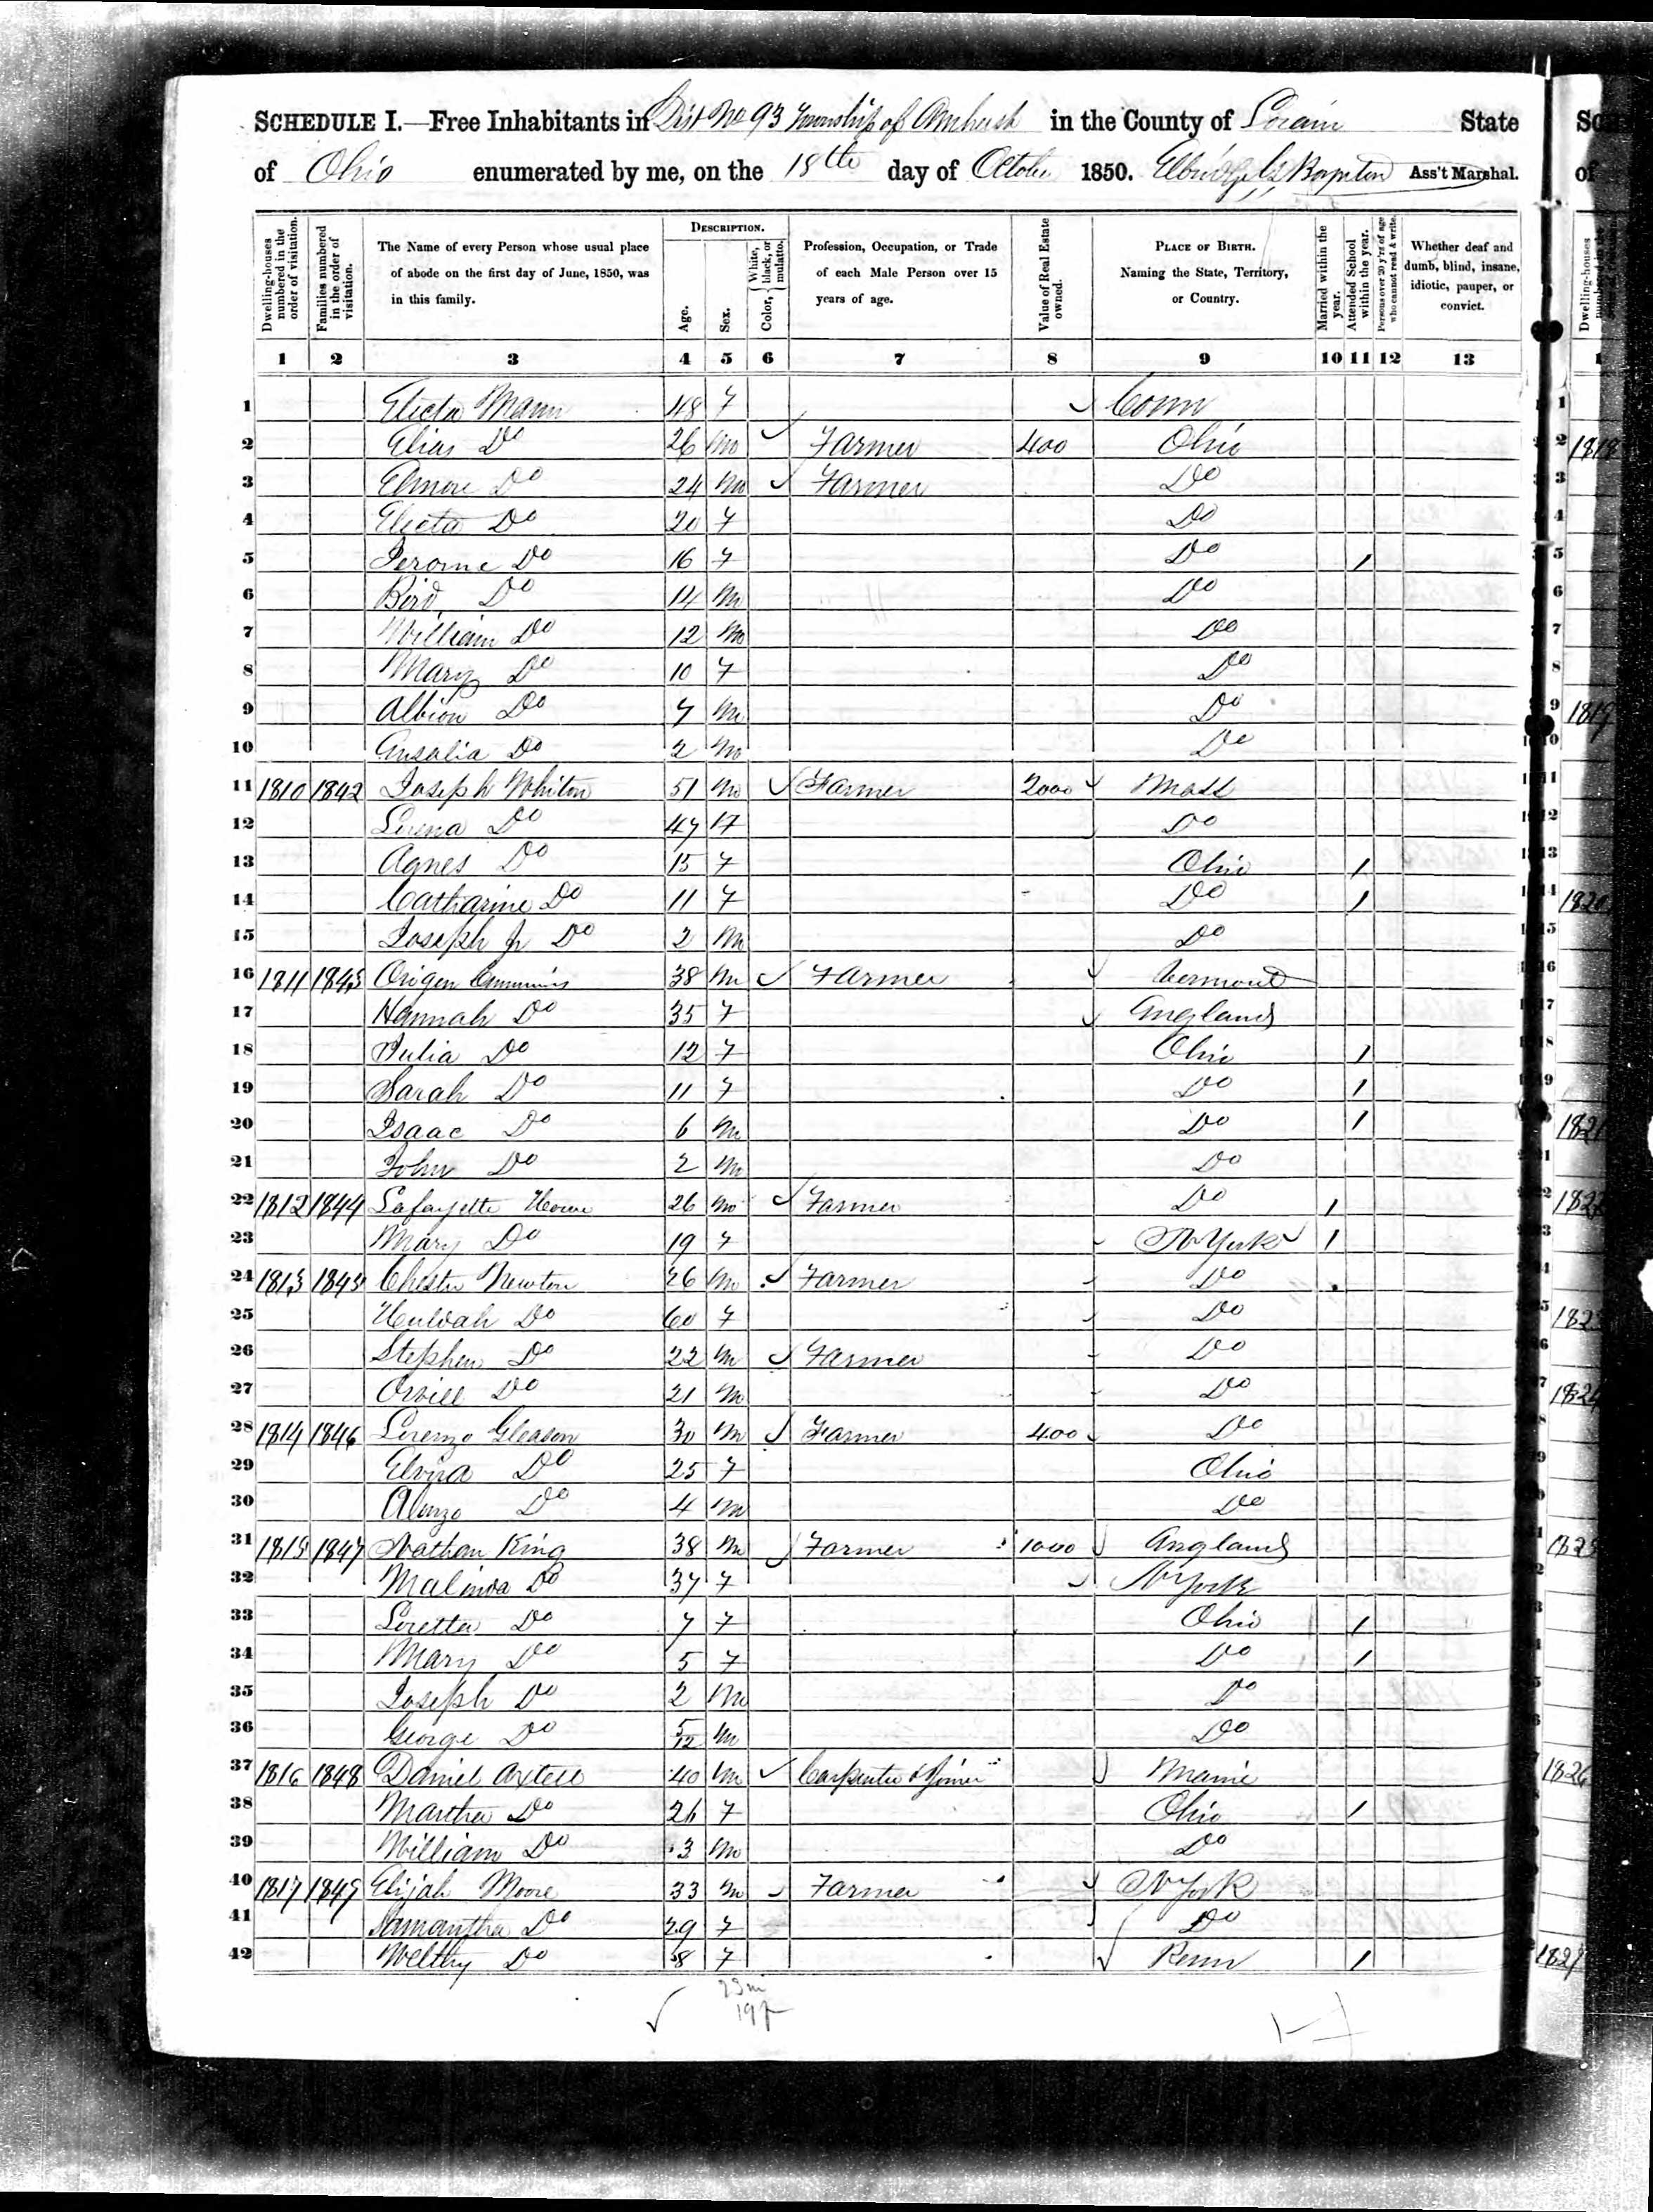 SCHEDULE I.—Free Inhabitants in Dist No 93 Township of Amherst in the County of Lorain State
of Ohio enumerated by me, on the 18th day of October 1850. Elbridge G Boynton Ass't Marshal.
Dwelling-houses numbered in the order of visitation.
Families numbered in the order of visitation.
The Name of every Person whose usual place of abode on the first day of June, 1850, was in this family.
DESCRIPTION.
Age.
Sex.
Color, { White, black, or mulatto.
Profession, Occupation, or Trade of each Male Person over 15 years of age.
Value of Real Estate owned.
PLACE OF BIRTH. Naming the State, Territory, or Country.
Married within the year.
Attended School within the year.
Persons over 20 y'rs of age who cannot read & write.
Whether deaf and dumb, blind, insane, idiotic, pauper, or convict.
1 2 3 4 5 6 7 8 9 10 11 12 13
1 Electa Mann 48 F Conn
2 Elias Do 26 M Farmer 400 Ohio
3 Elmore Do 24 M Farmer Do
4 Electa Do 20 F Do
5 Jerome Do 16 F Do /
6 Bird Do 14 M Do
7 William Do 12 M Do
8 Mary Do 10 F Do
9 Albion Do 7 M Do
10 Do 2 M Do
11 1810 1842 Joseph Whiton 51 M Farmer 2000 Mass
12 Do 47 F Do
13 Agnes Do 15 F Ohio /
14 Catharine Do 11 F Do /
15 Joseph Jr Do 2 M Do
16 1811 1843 Origen Cummins 38 M Farmer Vermont
17 Hannah Do 35 F England
18 Julia Do 12 F Ohio /
19 Sarah Do 11 F Do /
20 Isaac Do 6 M Do /
21 John Do 2 M Do
22 1812 1844 Lafayette 26 M Farmer Do /
23 Mary Do 19 F N York /
24 1813 1845 Chester Newton 26 M Farmer Do
25 Huldah Do 60 F Do
26 Stephen Do 22 M Farmer Do
27 Orvill Do 21 M Do
28 1814 1846 Lorenzo Gleason 30 M Farmer 400 Do
29 Elvira Do 25 F Ohio
30 Alonzo Do 4 M Do
31 1815 1847 Nathan King 38 M Farmer 1000 England
32 Malinda Do 37 F N York
33 Loretta Do 7 F Ohio /
34 Mary Do 5 F Do /
35 Joseph Do 2 M Do
36 George Do 5/12 M Do
37 1816 1848 Daniel Axtell 40 M Carpenter & Joiner Maine
38 Martha Do 26 F Ohio /
39 William Do 3 M Do
40 1817 1849 Elijah Moore 33 M Farmer N York
41 Samantha Do 29 F Do
42 Welthy Do 8 F Penn /
23 m
19 f